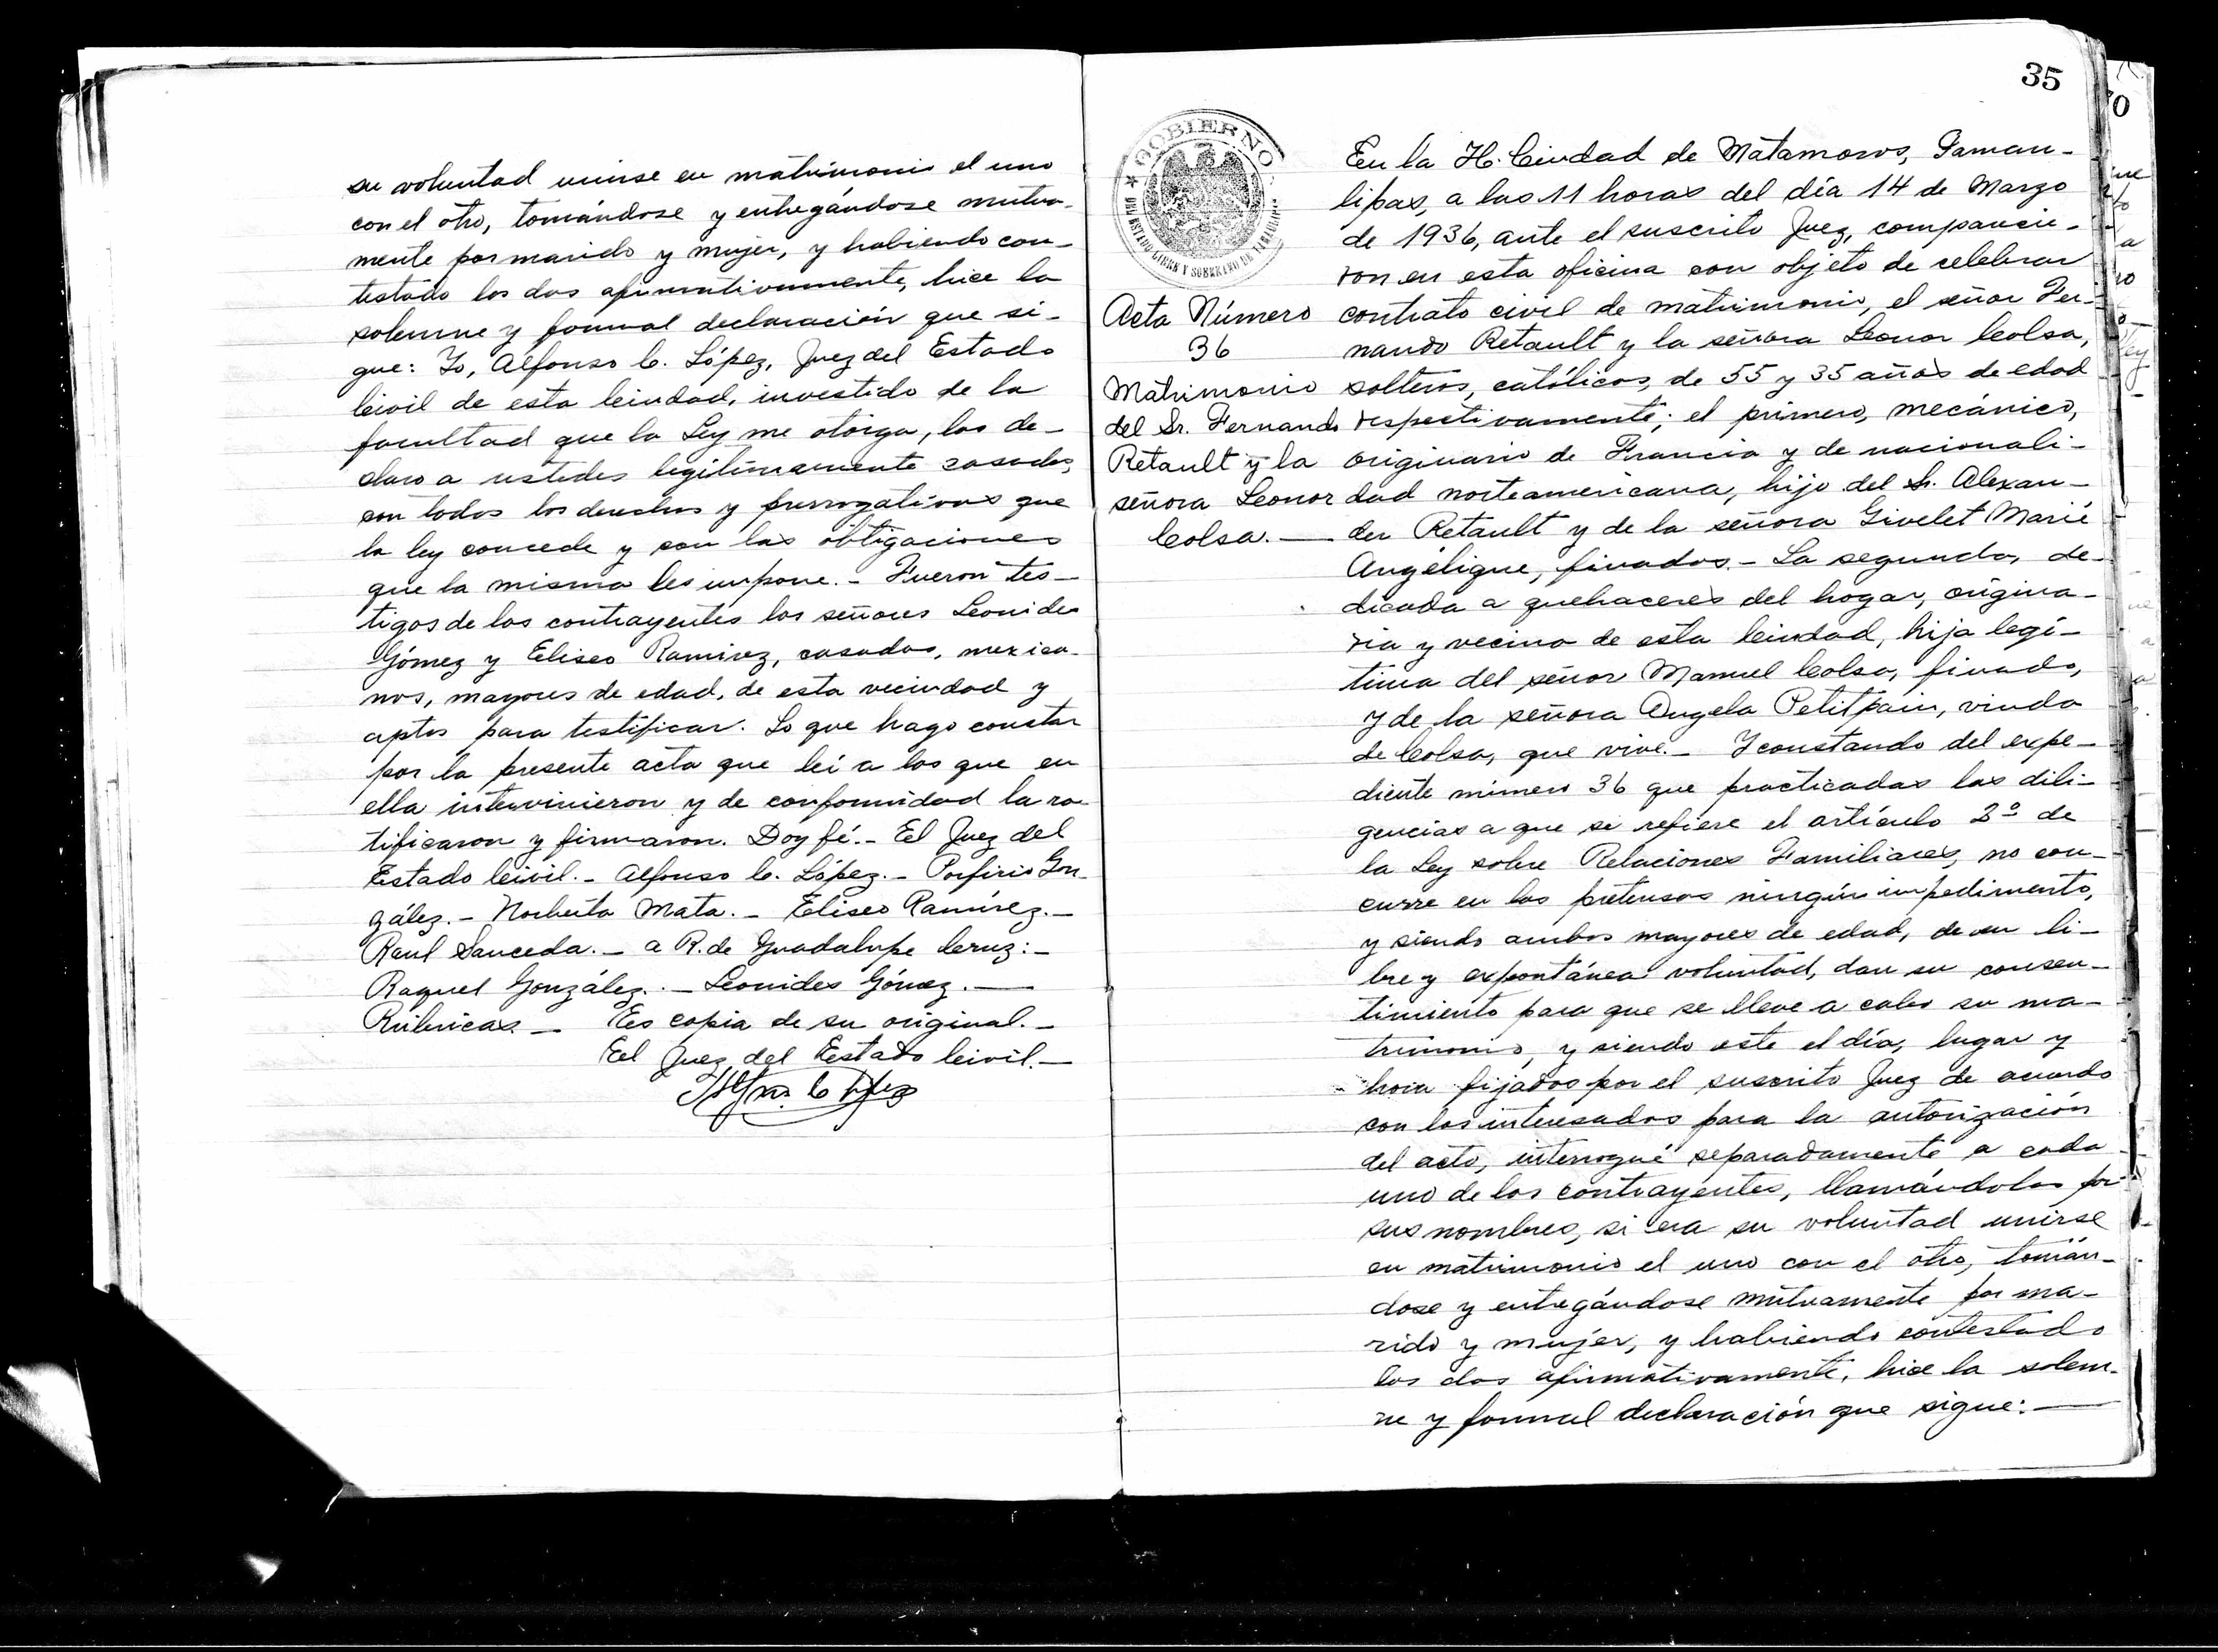 su voluntad unirse en matrimonio el uno
con el otro, tomándose y entregándose mutua-
mente por marido y mujer, y habiendo con-
testado los dos afirmativamente, hice la
solemne y formal declaración que si-
gue: Yo, Alfonso C. López, Juez del Estado
Civil de esta Ciudad, investido de la
facultad que la Ley me otorga, los de-
claro a ustedes legítimamente casados,
con todos los derechos y prerrogativas que
la ley concede y con las obligaciones
que la misma les impone.- Fueron tes-
tigos de los contrayentes los señores Leonides
Gómez y Eliseo Ramírez, casados, mexica-
nos, mayores de edad, de esta vecindad y
aptos para testificar. Lo que hago constar
por la presente acta que leí a los que en
ella intervinieron y de conformidad la ra-
tificaron y firmaron. Doy fé.- El Juez del
Estado Civil.- Alfonso C. López.- Porfirio Gon-
zález.- Norberto Mata.- Eliseo Ramírez.-
Raul Sauceda.- a R. de Guadalupe Cruz:-
Raquel González.- Leonides Gómez.-
Rúbricas.- Es copia de su original.-
El Juez del Estado Civil.-
35
GOBIERNO
DEL ESTADO LIBRE Y SOBERANO DE TAMAULIPAS
Acta Número
36
Matrimonio
del Sr. Fernando
Retault y la
señora Leonor
Colsa.-
En la H. Ciudad de Matamoros, Tamau-
lipas, a las 11 horas del día 14 de Marzo
de 1936, ante el suscrito Juez, comparecie-
ron en esta oficina con objeto de celebrar
contrato civil de matrimonio, el señor Fer-
nando Retault y la señora Leonor Colsa,
solteros, católicos, de 55 y 35 años de edad
respectivamente; el primero, mecánico,
originario de Francia y de nacionali-
dad norteamericana, hijo del Sr. Alexan-
der Retault y de la señora Givelet Marié
Angélique, finados.- La segunda, de-
dicada a quehaceres del hogar, origina-
ria y vecina de esta Ciudad, hija legí-
tima del señor Manuel Colsa, finado,
y de la señora Angela Petitpain, viuda
de Colsa, que vive.- Y constando del expe-
diente número 36 que practicadas las dili-
gencias a que se refiere el artículo 2º de
la Ley sobre Relaciones Familiares, no con-
curre en los pretensos ningún impedimento,
y siendo ambos mayores de edad, de su li-
bre y expontánea voluntad, dan su consen-
timiento para que se lleve a cabo su ma-
trimonio, y siendo este el día, lugar y
hora fijados por el suscrito Juez de acuerdo
con los interesados para la autorización
del acto, interrogué separadamente a cada
uno de los contrayentes, llamándolos por
sus nombres, si era su voluntad unirse
en matrimonio el uno con el otro, tomán-
dose y entregándose mútuamente por ma-
rido y mujer, y habiendo contestado
los dos afirmativamente, hice la solem-
ne y formal declaración que sigue:-